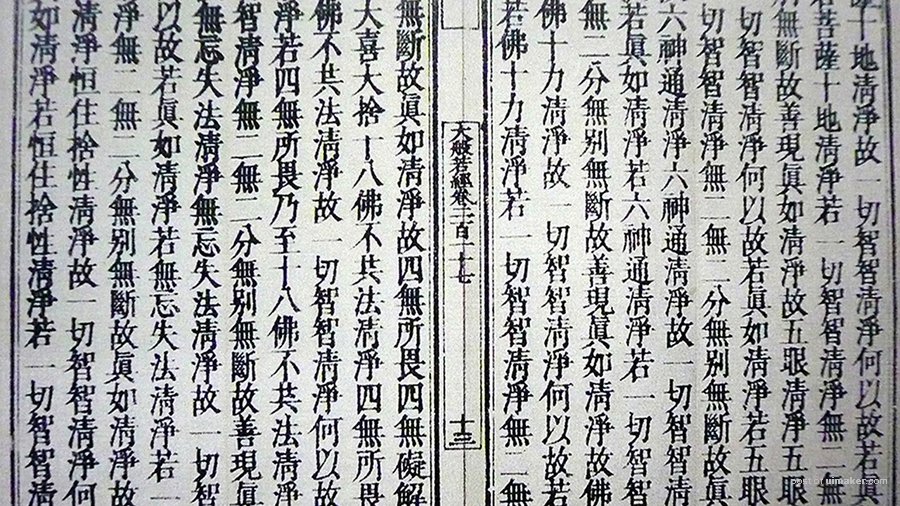 薩十地清淨故一切智智清淨何以故若眞
若菩薩十地清淨若一切智智清淨無二無
別無斷故善現眞如清淨故五眼清淨五眼
切智智清淨何以故若眞如清淨若五眼
切智智清淨無二無二分無別無斷故眞
六神通清淨六神通清淨故一切智智清
若眞如清淨若六神通清淨若一切智智
無二分無別無斷故善現眞如清淨故佛
佛十力清淨故一切智智清淨何以故若
若佛十力清淨若一切智智清淨無二無
大般若經卷二百一十七
十三
無斷故眞如清淨故四無所畏四無礙解
大喜大捨十八佛不共法清淨四無所畏
佛不共法清淨故一切智智清淨何以故
淨若四無所畏乃至十八佛不共法清淨
智清淨無二無二分無別無斷故善現眞
無忘失法清淨無忘失法清淨故一切智
以故若眞如清淨若無忘失法清淨若一
淨無二無二分無別無斷故眞如清淨故
清淨恒住捨性清淨故一切智智清淨何
如清淨若恒住捨性清淨若一切智智清
post of uimaker.com